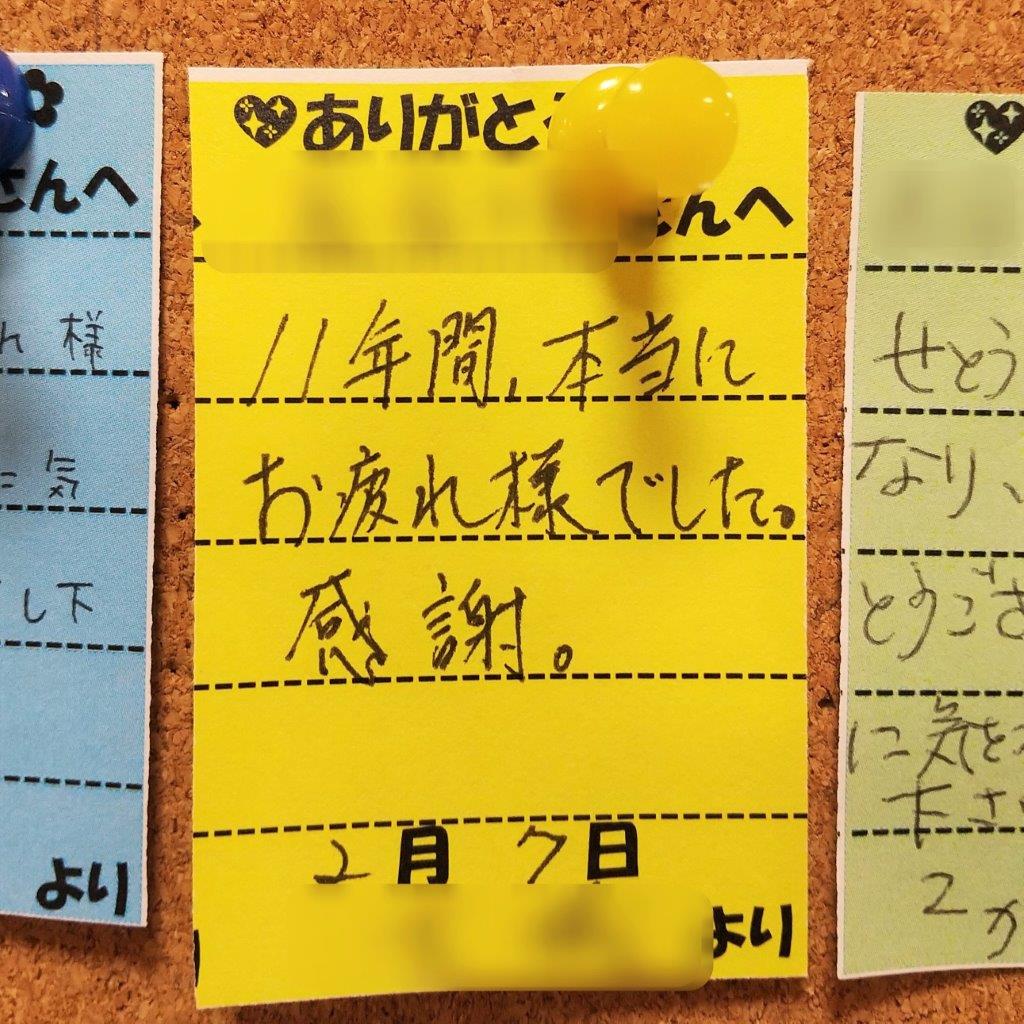 さんへ
れ 様
に 気
し下
より
ありがとう
さんへ
11年間、本当に
お疲れ様でした。
感謝。
2月 7日
より
せとう
なり、
とうござ
に気を
下さい
2